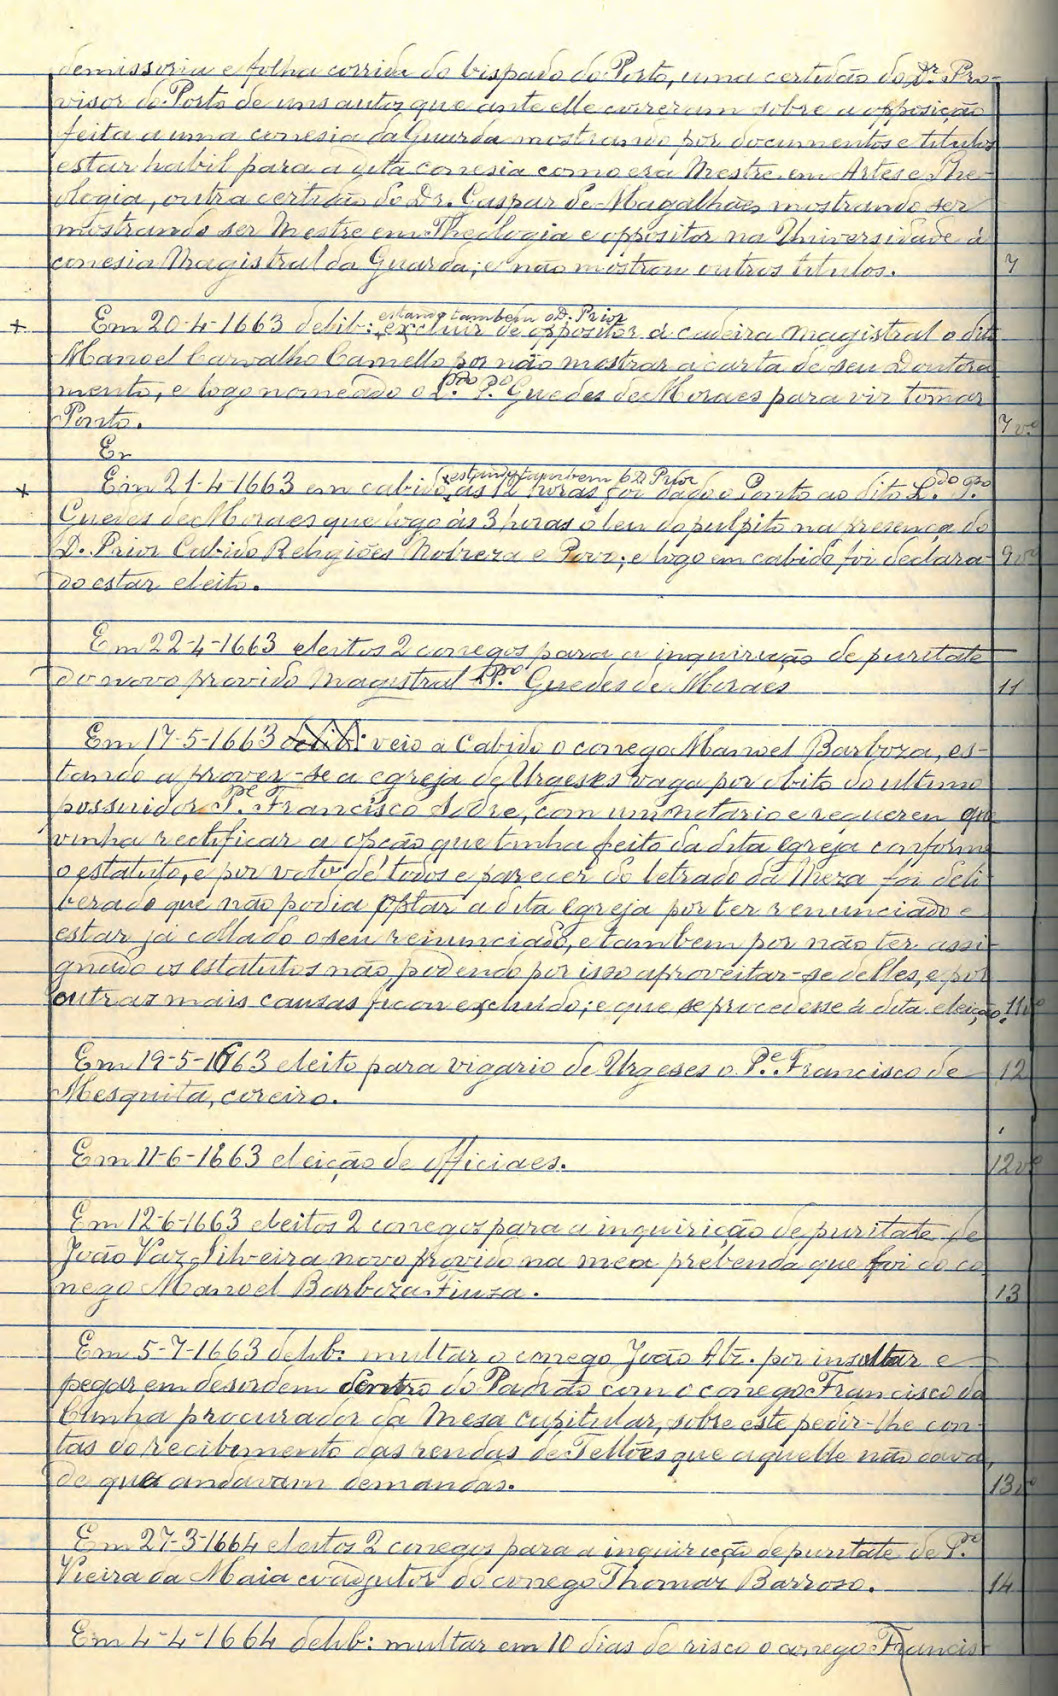 demissoria e folha corrida do bispado do Porto, uma certidão do Dr. Pro-
visor do Porto de uns autos que ante elle correram sobre a opposição
feita a uma conesia da Guarda mostrando por documentos e titulos
estar habil para a dita conesia como era Mestre em Artes e The-
ologia, outra certidão do Dr. Gaspar de Magalhães mostrando ser
mostrando ser Mestre em Theologia e oppositor na Universidade á
conesia Magistral da Guarda; e não mostrou outros titulos. 7
estando tambem o D. Prior
+ Em 20-4-1663 delib: excluir de oppositor á cadeira magistral o dito
Manoel Carvalho Camello por não mostrar a carta de seu Doutora
mento, e logo nomeado o L.do P.o Guedes de Moraes para vir tomar
Ponto. 7 v.o
Em
estando tambem o D. Prior
+ Em 21-4-1663 em cabido, ás 12 horas foi dado o Ponto ao dito L.do P.o
Guedes de Moraes que logo ás 3 horas o leu do pulpito na presença do
D. Prior Cabido Religiões Nobreza e Povo; e logo em cabido foi declara- 9 v.o
do estar eleito.
Em 22-4-1663 eleitos 2 conegos para a inquirição de puritate
do novo provido Magistral P.o Guedes de Moraes 11
Em 17-5-1663 delib: veio a Cabido o conego Manoel Barboza, es-
tando a prover-se a egreja de Urgeses vaga por obito do ultimo
possuidor P.e Francisco Nobre, com um notario e requereu que
vinha rectificar a opção que tinha feito da dita Egreja conforme
o estatuto, e por voto de todos e parecer do letrado da Meza foi deli-
berado que não podia optar a dita Egreja por ter renunciado e
estar já collado o seu renunciado, e tambem por não ter assi-
gnado os estatutos não podendo por isso aproveitar-se delles, e por
outras mais causas ficou excluido; e que se procedesse á dita eleição. 11 v.o
Em 19-5-1663 eleito para vigario de Urgeses o P.e Francisco de 12
Mesquita, coreiro.
Em 11-6-1663 eleição de officiaes. 12 v.o
Em 12-6-1663 eleitos 2 conegos para a inquirição de puritate de
João Vaz Silveira novo provido na meia prebenda que foi do co
nego Manoel Barboza Fiuza. 13
Em 5-7-1663 delib: multar o conego João Alz. por insultar e
pegar em desordem dentro do Padrão com o conego Francisco da
Cunha procurador da Mesa capitular, sobre este pedir-lhe con-
tas do recebimento das rendas de Tellões que aquelle não dava,
de que andavam demandas. 13 v.o
Em 27-3-1664 eleitos 2 conegos para a inquirição de puritate de P.o
Vieira da Maia coadjutor do conego Thomaz Barroso. 14
Em 4-4-1664 delib: multar em 10 dias de risco o conego Francis-